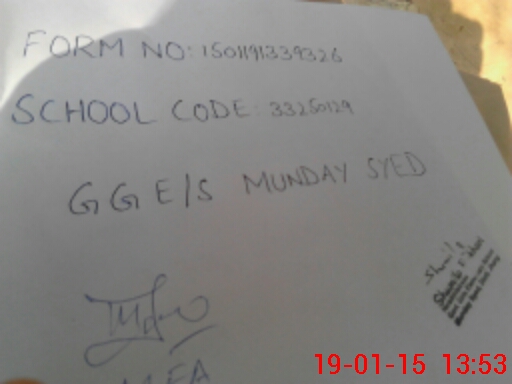 FORM NO: 1501191339326
SCHOOL CODE: 33250129
GGE/S MUNDAY SYED
19-01-15 13:53